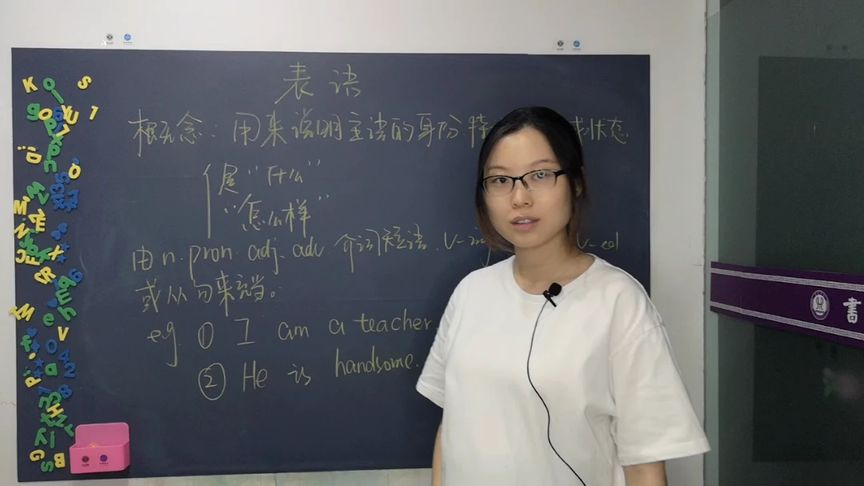 表语
概念：用来说明主语的身份 特 或状态
是"什么"
"怎么样"
由n. pron. adj. adv 介词短语. V-in V-ed
或从句来充当。
eg ① I am a teacher.
② He is handsome.
書